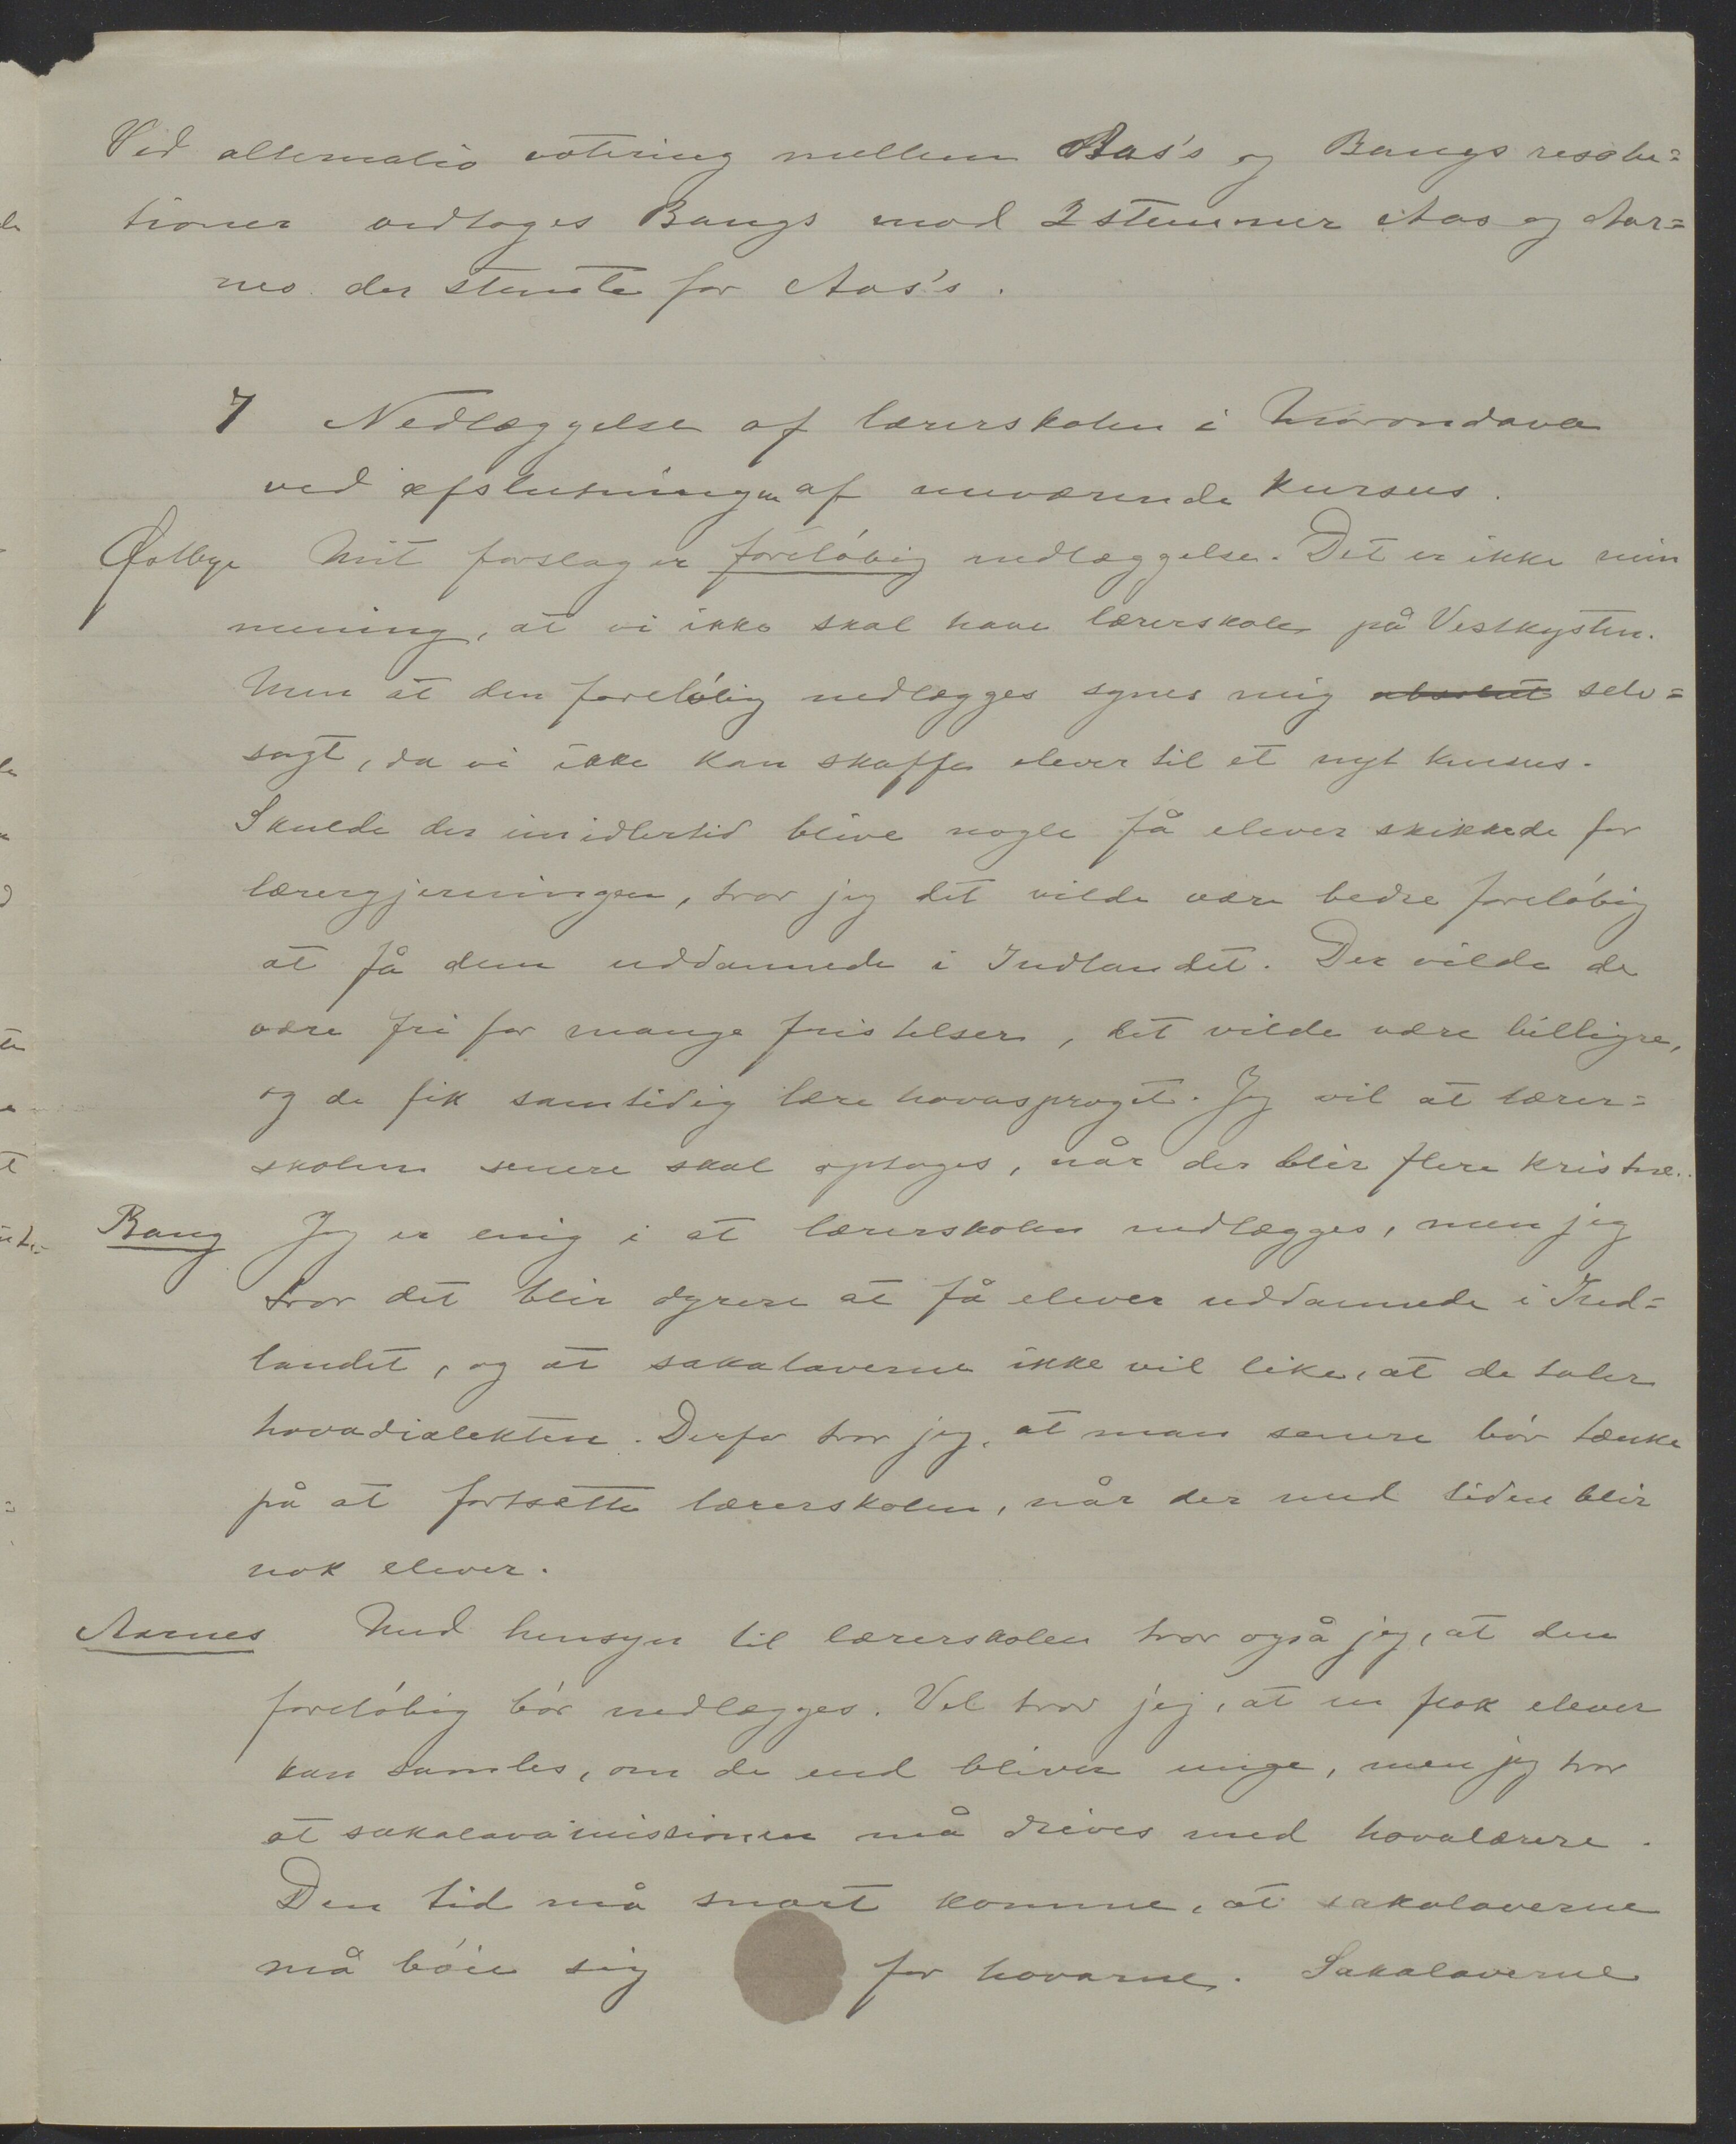 Ved alternativ votering mellem Aas's og Bangs resolu=
tioner vedtoges Bangs mod 2 stemmer Aas og Aar=
nes der stemte for Aas's.
7 Nedlæggelse af lærerskolen i Morondava
ved afslutningen af nuværende kursus.
Østbye Mit forslag er foreløbig nedlæggelse. Det er ikke min
mening, at vi ikke skal have lærerskole på Vestkysten.
Men at den foreløbig nedlægges synes mig absolut selv=
sagt, da vi ikke kan skaffe elever til et nyt kursus.
Skulde der imidlertid blive nogle få elever skikkede for
lærergjerningen, tror jeg det vilde være bedre foreløbig
at få dem uddannede i Indlandet. Der vilde de
være fri for mange fristelser, det vilde være billigre,
og de fik samtidig lære hovasproget. Jeg vil at lærer=
skolen senere skal optages, når der blir flere kristne.
Bang Jeg er enig i at lærerskolen nedlægges, men jeg
tror det blir dyrere at få elever uddannede i Ind=
landet, og at sakalaverne ikke vil like, at de taler
hovadialekten. Derfor tror jeg, at man senere bør tænke
på at fortsætte lærerskolen, når der med tiden blir
nok elever.
Aarnes Med hensyn til lærerskolen tror også jeg, at den
foreløbig bør nedlægges. Vel tror jeg, at en flok elever
kan samles, om de end bliver unge, men jeg tror
at sakalavamissionen må drives med hovalærere.
Den tid må snart komme, at sakalaverne
må bøie sig for hovarne. Sakalaverne